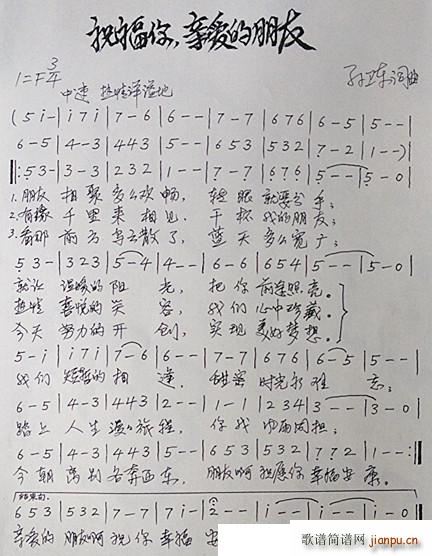 祝福你,亲爱的朋友
1=F 3/4
中速 热情洋溢地
孙
词曲
( 5 i - | i 7 i | 7 - 6 | 6 - - | 7 - 7 | 6 7 6 | 6 - 5 | 5 - - |
6 - 5 | 4 - 3 | 4 4 3 | 5 - - | 6 5 3 | 5 3 2 | 7 - 2 | 1 - - ) |
‖: 5 3 - | 3 - 3 | 2 3 2 | 1 - - | 7 - 7 | 6 7 6 | 5 - - | 5 - 0 |
1. 朋友 相聚 多么欢畅, 转眼 就要分手;
2. 有缘 千里来 相见, 干杯 我的朋友;
3. 看那 前方 乌云散了, 蓝天 多么宽广;
5 3 - | 3 2 3 | 5 - 4 | 4 - - | 6 - 6 | 6 5 4 | 5 - - | 5 - 0 |
就让 温暖的 阳光, 把你 前途照亮。
热情 喜悦的 笑容, 我们 心中珍藏。
今天 努力的 开创, 实现 美好梦想。
5 - i | i 7 i | 7 - 6 | 6 - - | 7 - 7 | 6 7 6 | 6 - 5 | 5 - - |
我们 短暂的 相逢, 甜蜜 时光永难忘;
6 - 5 | 4 - 3 | 4 4 3 | 2 - - | 1 - 1 | 2 3 4 | 3 - - | 3 - 0 |
踏上 人生 漫漫旅程, 你我
6 - 5 | 4 - 3 | 4 4 3 | 5 - - | 6 5 3 | 5 3 2 | 7 7 2 | 1 - - :‖
今朝 离别 各奔西东, 朋友啊 祝愿你 幸福安康。
结束句
6 5 3 | 5 3 2 | 7 - 7 | 7 - i | 2 - - | i - - | i - - | i - 0 |
亲爱的 朋友啊 祝你 幸福 安
歌谱简谱网
jianpu.cn